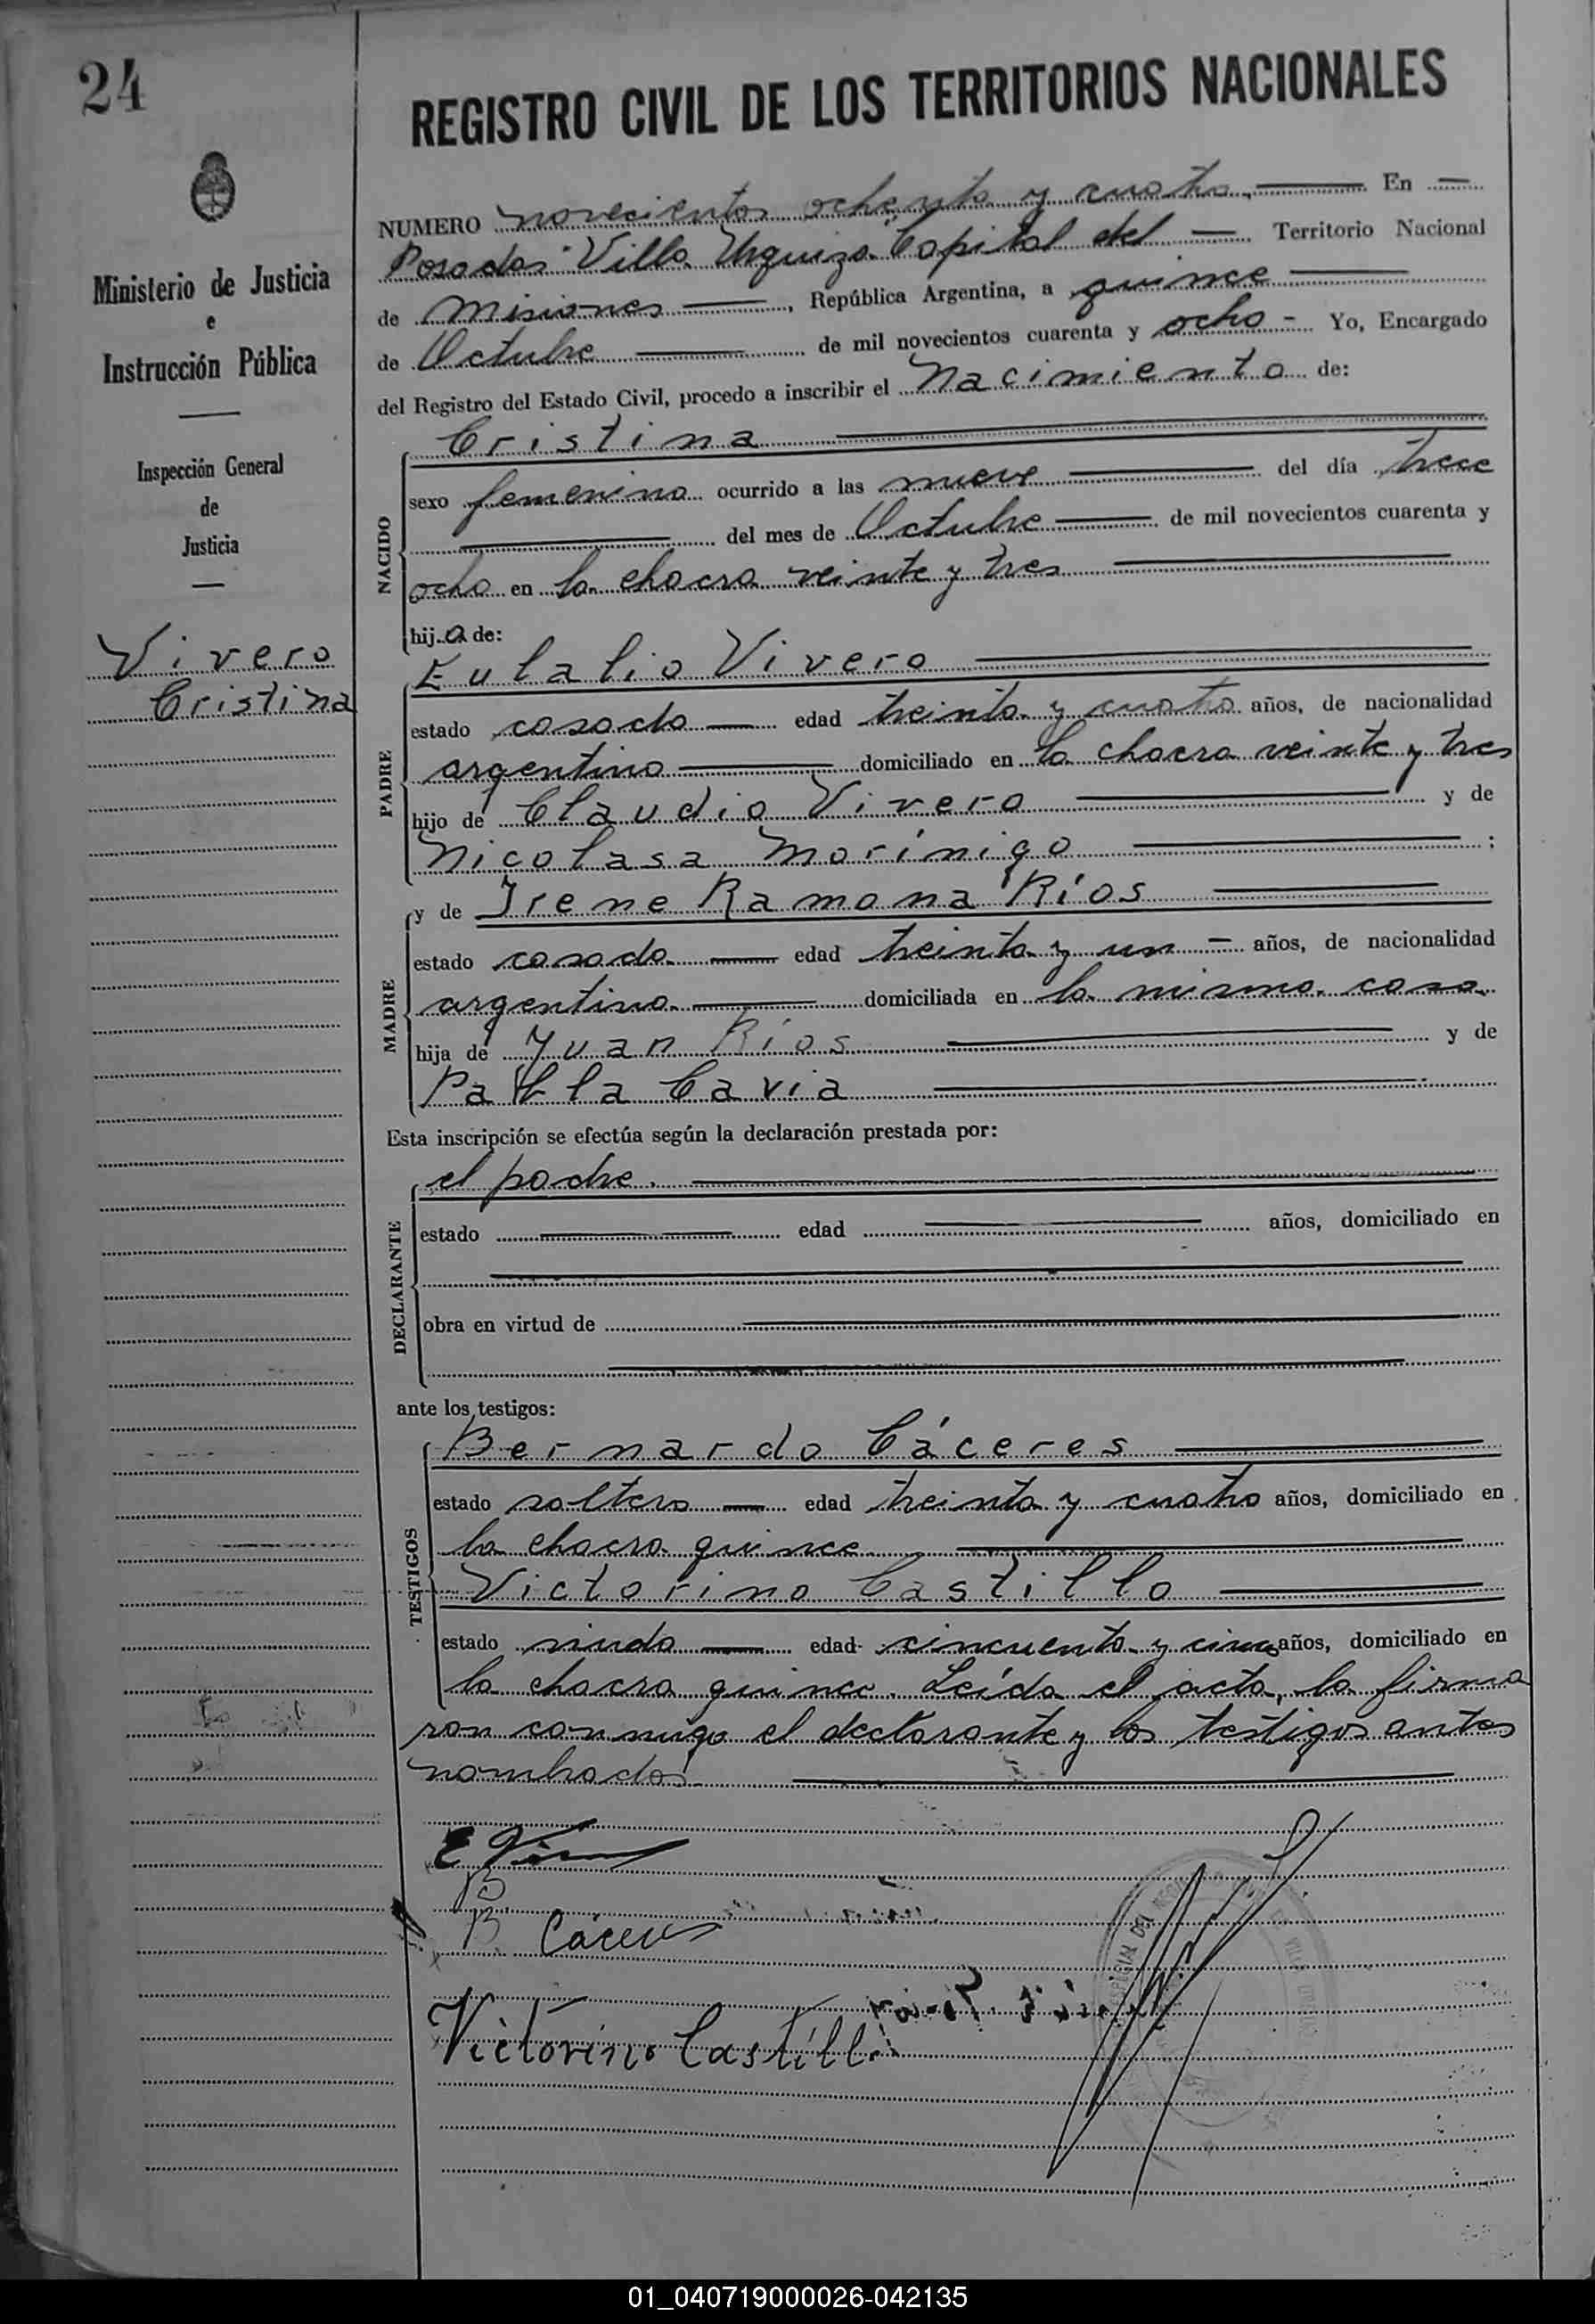 24
REGISTRO CIVIL DE LOS TERRITORIOS NACIONALES
Ministerio de Justicia
e
Instrucción Pública
Inspección General
de
Justicia
Vivero
Cristina
NUMERO novecientos ochenta y cuatro, En
Posadas "Villa Urquiza" Capital del Territorio Nacional
de Misiones, República Argentina, a quince
de Octubre de mil novecientos cuarenta y ocho - Yo, Encargado
del Registro del Estado Civil, procedo a inscribir el Nacimiento de:
NACIDO
Cristina
sexo femenino ocurrido a las nueve del día trece
del mes de Octubre de mil novecientos cuarenta y
ocho en la chacra veinte y tres
hija de:
PADRE
Eulalio Vivero
estado casado edad treinta y cuatro años, de nacionalidad
argentino domiciliado en la chacra veinte y tres
hijo de Claudio Vivero y de
Nicolasa Morínigo ;
MADRE
y de Irene Ramona Ríos
estado casada edad treinta y un - años, de nacionalidad
argentina domiciliada en la misma casa
hija de Juan Ríos y de
Cavia
Esta inscripción se efectúa según la declaración prestada por:
DECLARANTE
el padre.
estado edad años, domiciliado en
obra en virtud de
ante los testigos:
TESTIGOS
Bernardo Cáceres
estado soltero edad treinta y cuatro años, domiciliado en
la chacra quince
Victorino Castillo
estado viudo edad cincuenta y cinco años, domiciliado en
la chacra quince. Leída el acta, la firma
ron conmigo el declarante y los testigos antes
nombrados
B.
B. Cáceres
Victorino Castillo
01_040719000026-042135